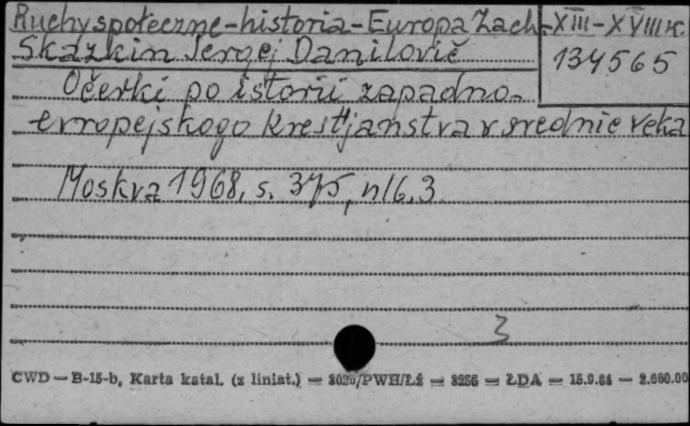 Ruchy społeczne - historia - Europa Zach. - XIII - XVIII w.
Skazkin Sergej Danilovič
134565
Očerki po istorii zapadno-
evropejskogo krestjanstva v srednie veka
Moskva 1968, s. 375, nlb. 3
3
CWD — B-15-b, Karta katal. (z liniat.) — PWH/Łź — 3256 — ŁDA — 15.9.64 — 2.000.00